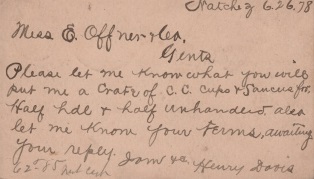 Natchez 6.26.78
Mess E. Offner & Co.
Gents
Please let me know what you will
put me a Crate of C.C. Cups & Saucers for.
Half hdle & half unhandled. also
let me know your terms, awaiting
your reply. I am &c Henry Davis
62-85 net cash